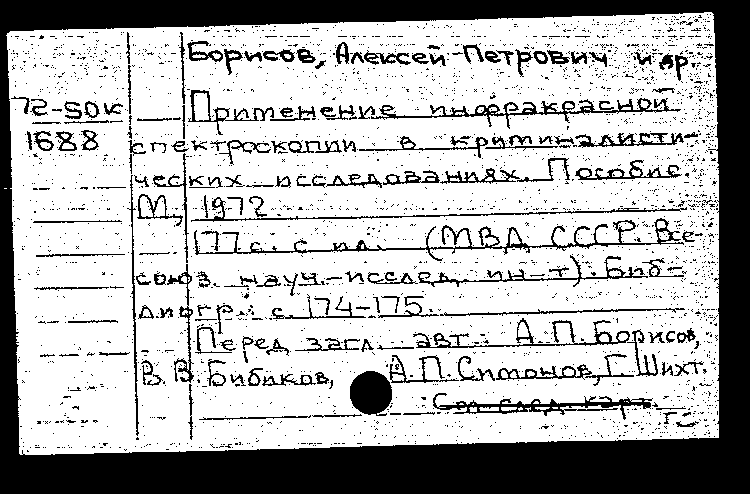 Борисов, Алексей Петрович и др.
72-SOк
1688
Применение инфракрасной
спектроскопии в криминалисти-
ческих исследованиях. Пособие.
М., 1972.
177 с. с ил. (МВД СССР. Все-
союз. науч.-исслед. ин-т). Биб-
лиогр.: с. 174-175.
Перед загл. авт.: А.П. Борисов,
В.В. Бибиков, А.П. Симонов, Г. Шихт.
См след. карт.